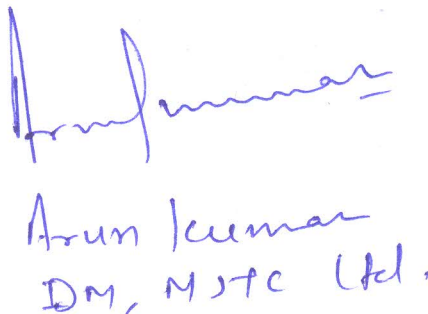 Arunkumar
Arun Kumar
DM, MSTC Ltd.